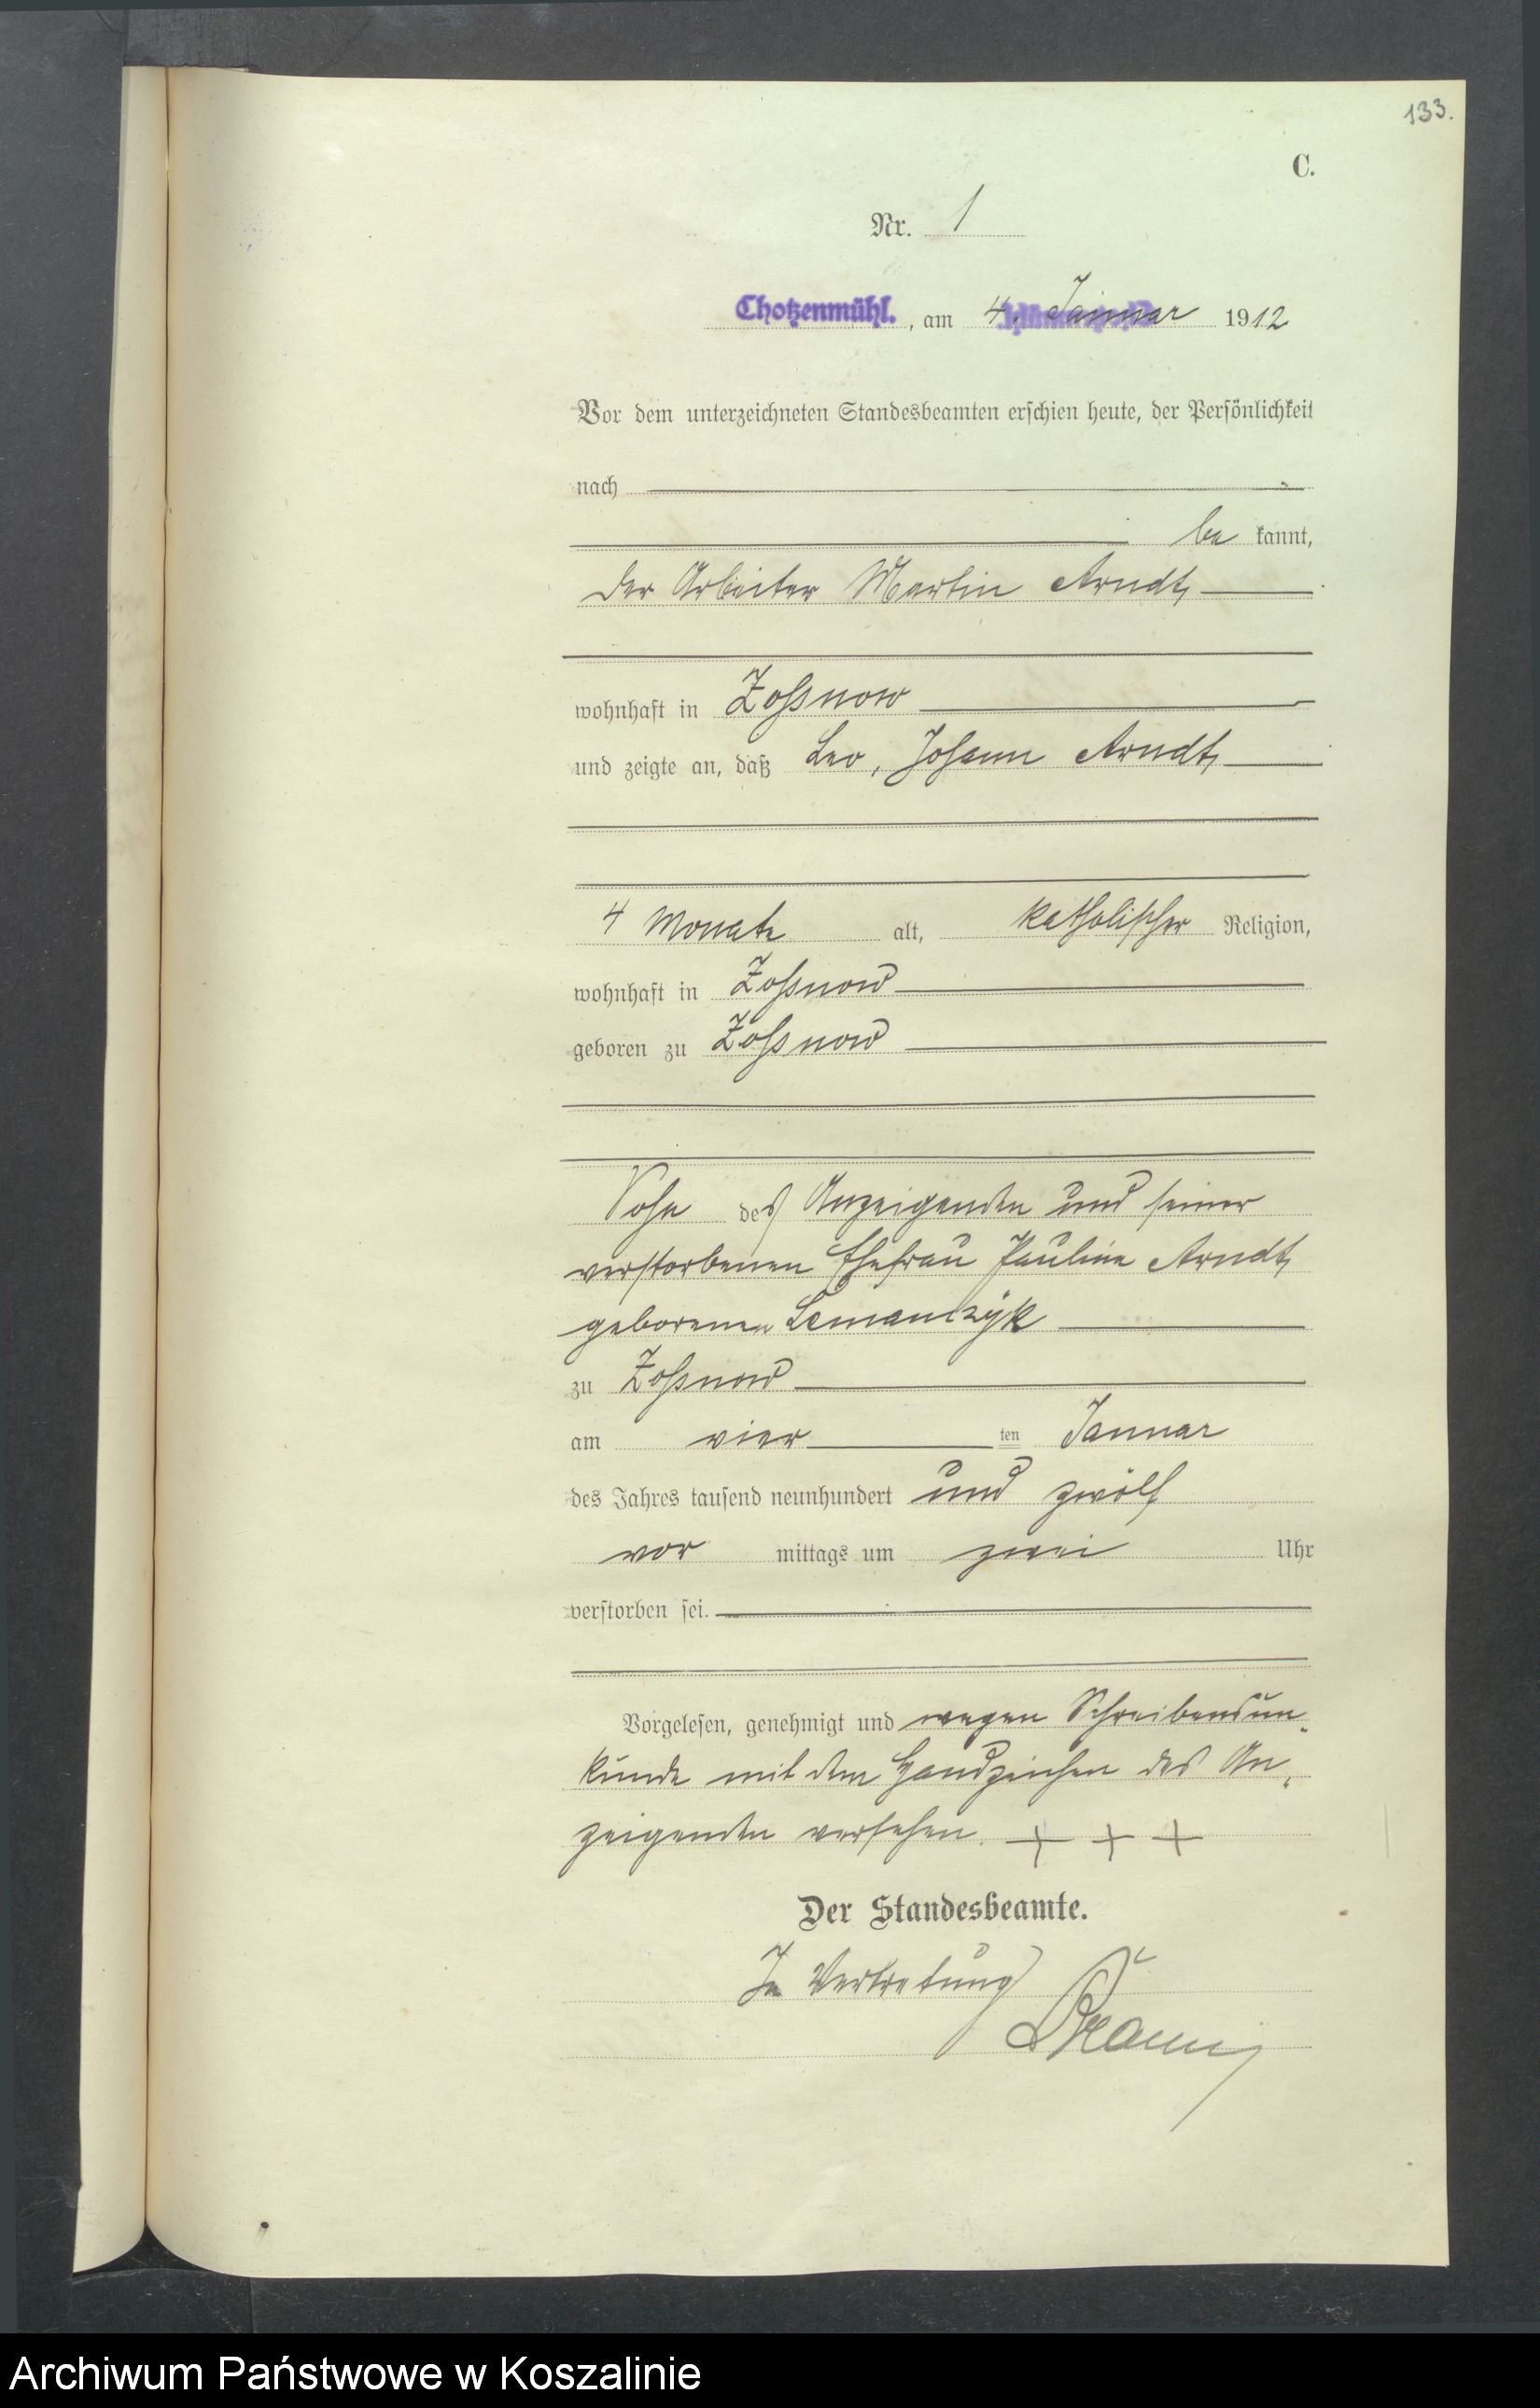 133.
C.
Nr. 1
Chotzenmühl., am 4. Januar 1912
Vor dem unterzeichneten Standesbeamten erschien heute, der Persönlichkeit
nach
be kannt,
der Arbeiter Martin Arndt,
wohnhaft in Zoßnow
und zeigte an, daß Leo, Johann Arndt,
4 Monate alt, katholischer Religion,
wohnhaft in Zoßnow
geboren zu Zoßnow
Sohn des Anzeigenden und seiner
verstorbenen Ehefrau Pauline Arndt,
geborenen Lemanczyk
zu Zoßnow
am vier ten Januar
des Jahres tausend neunhundert und zwölf
vor mittags um zwei Uhr
verstorben sei.
Vorgelesen, genehmigt und wegen Schreibensun-
kunde mit dem Handzeichen des An-
zeigenden versehen. + + +
Der Standesbeamte.
In Vertretung
Archiwum Państwowe w Koszalinie